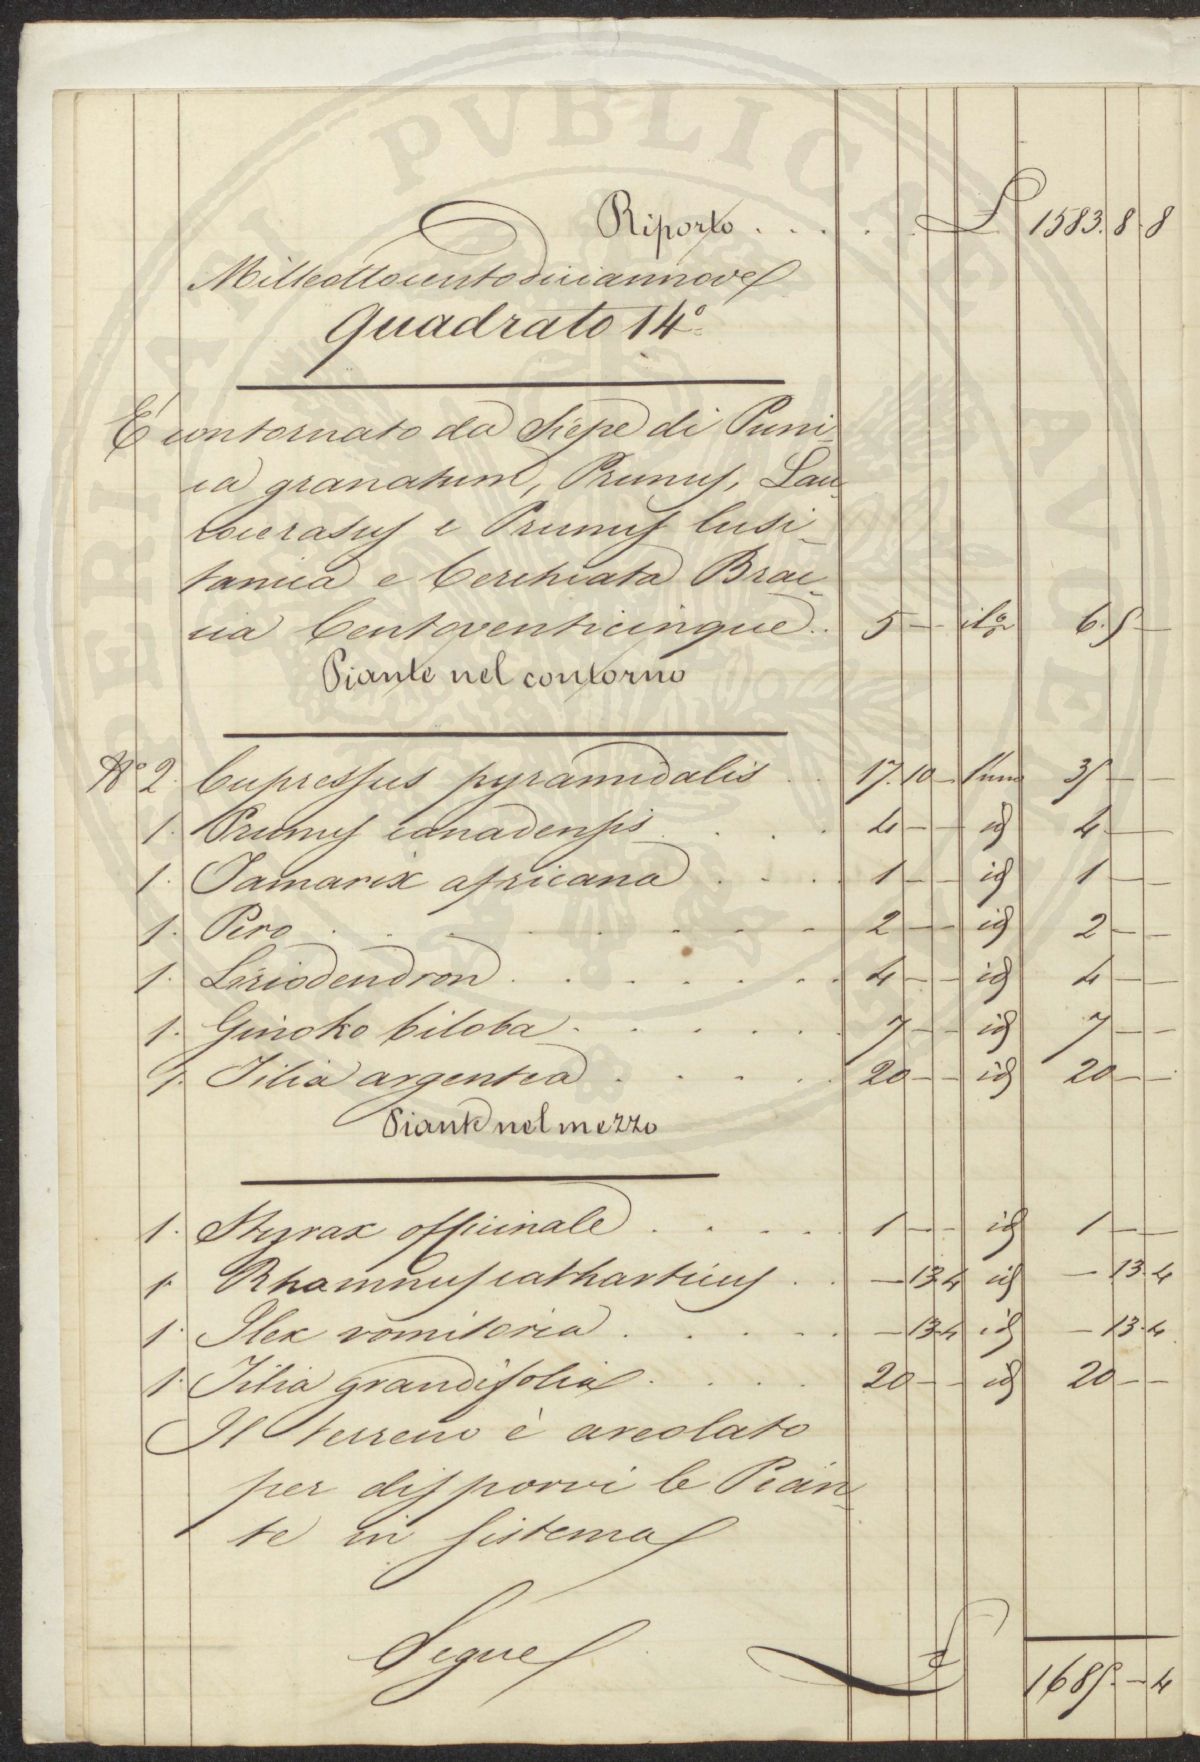 Riporto . . . . . . £ 1583. 8. 8
Milleottocentodiciannove
Quadrato 14°
È contornato da Siepe di Puni-
ca granatum, Prunus, Lau-
rocerasus e Prunus lusi-
tanica e Cerchiata Brac-
cia Centoventicinque . . 5 — — il % 6. 5 —
Piante nel contorno
N° 2. Cupressus pyramidalis . . 17. 10 — l'una 35 — —
1. Prunus canadensis . . . . 4 — — id 4 — —
1. Tamarix africana . . . . 1 — — id 1 — —
1. Pero . . . . . . . . . 2 — — id 2 — —
1. Liriodendron . . . . . . . 4 — — id 4 — —
1. Gincko biloba . . . . . . 7 — — id 7 — —
1. Tilia argentea . . . . . 20 — — id 20 — —
Piante nel mezzo
1. Styrax officinale . . . . . 1 — — id 1 — —
1. Rhamnus catharticus . . — 13 4 id — 13. 4
1. Ilex vomitoria . . . . . — 13. 4 id — 13. 4
1. Tilia grandifolia . . . . 20 — — id 20 — —
Il terreno è areolato
per disporvi le Pian-
te in sistema
Segue £ 1685. — 4